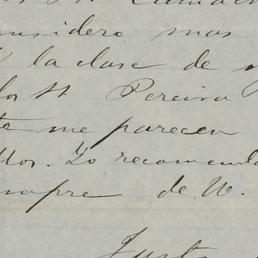 considero mas
la clase de
los H Pereira
te me parecen
llos. Yo recomenda
mpre de U.
Justo